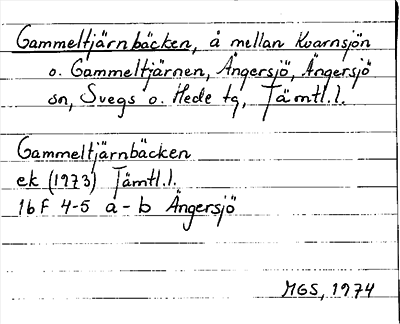 Gammeltjärnbäcken, å mellan Kvarnsjön
o. Gammeltjärnen, Ängersjö, Ängersjö
sn, Svegs o. Hede tg, Jämtl.l.
Gammeltjärnbäcken
ek (1973) Jämtl.l.
16F 4-5 a-b Ängersjö
MGS, 1974